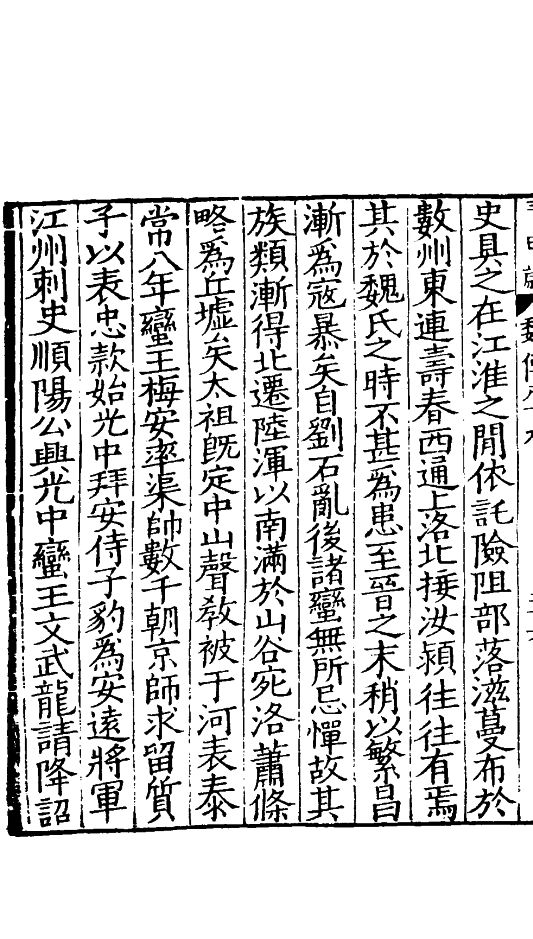 史具之在江淮之閒依託險阻部落滋蔓布於
數州東連壽春西通上洛北接汝潁往往有焉
其於魏氏之時不甚爲患至晉之末稍以繁昌
漸爲寇暴矣自劉石亂後諸蠻無所忌憚故其
族類漸得北遷陸渾以南滿於山谷宛洛蕭條
略爲丘墟矣太祖旣定中山聲敎被于河表泰
常八年蠻王梅安率渠帥數千朝京師求留質
子以表忠款始光中拜安侍子豹爲安遠將軍
江州刺史順陽公興光中蠻王文武龍請降詔